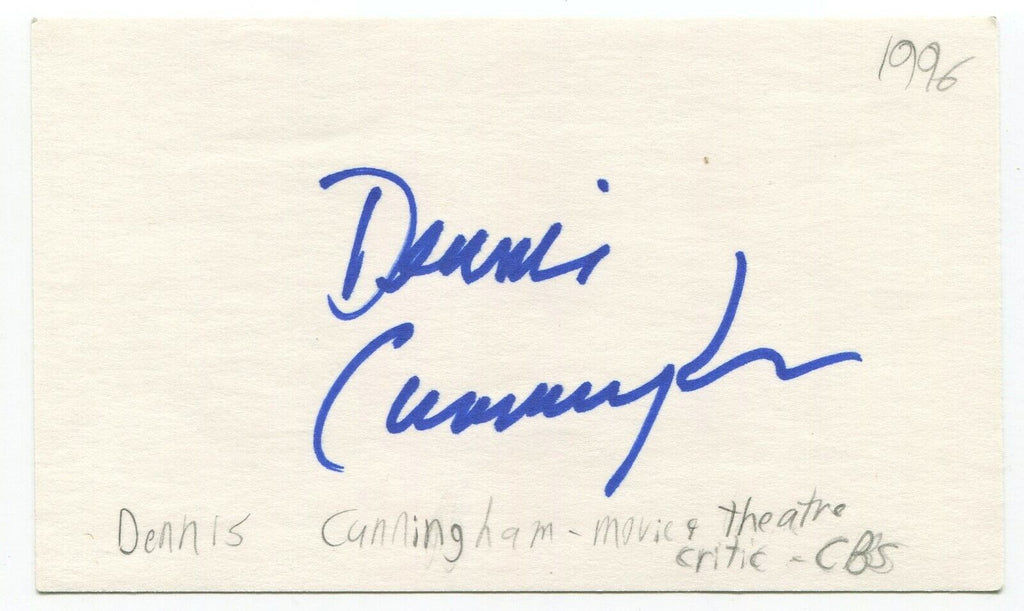 1996
Dennis
Cunningham
Dennis Cunningham - movie & theatre
critic - CBS